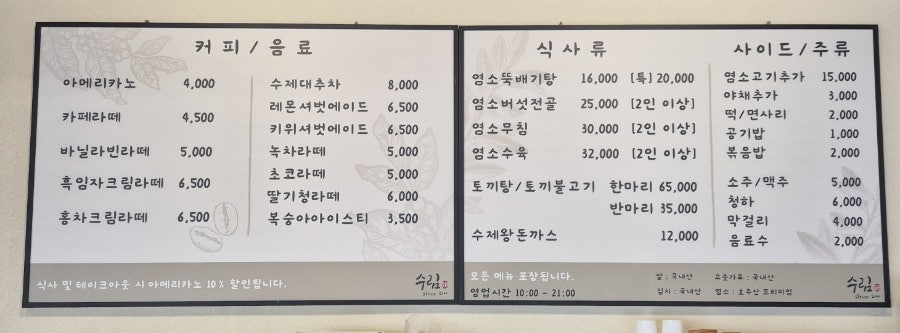 커피/음료
아메리카노 4,000
카페라떼 4,500
바닐라빈라떼 5,000
흑임자크림라떼 6,500
홍차크림라떼 6,500
수제대추차 8,000
레몬셔벗에이드 6,500
키위셔벗에이드 6,500
녹차라떼 5,000
초코라떼 5,000
딸기청라떼 6,000
복숭아아이스티 3,500
식사 및 테이크아웃 시 아메리카노 10% 할인됩니다.
수림
since
식사류
염소뚝배기탕 16,000 [특] 20,000
염소버섯전골 25,000 [2인 이상]
염소무침 30,000 [2인 이상]
염소수육 32,000 [2인 이상]
토끼탕/토끼불고기 한마리 65,000
반마리 35,000
수제왕돈까스 12,000
사이드/주류
염소고기추가 15,000
야채추가 3,000
떡/면사리 2,000
공기밥 1,000
볶음밥 2,000
소주/맥주 5,000
청하 6,000
막걸리 4,000
음료수 2,000
모든 메뉴 포장됩니다.
영업시간 10:00 ~ 21:00
쌀 : 국내산 고춧가루 : 국내산
김치 : 국내산 염소 : 호주산 프리미엄
수림
since